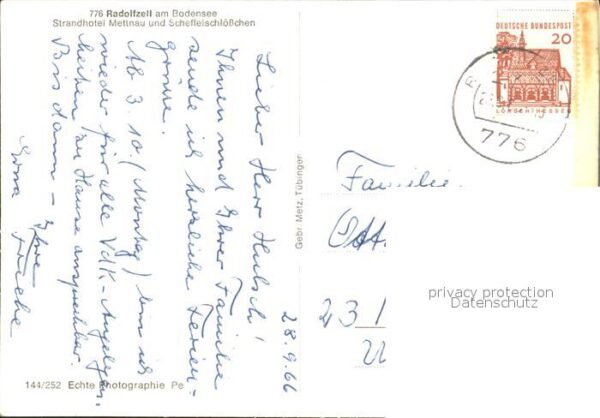 776 Radolfzell am Bodensee
Strandhotel Mettnau und Scheffelschlößchen
Lieber Herr Hutsch!
Ihnen und Ihrer Familie
sende ich herzliche Ferien-
grüsse.
Ab 3.10. (Montag) bin ich
wieder für alle VdK-Angelegen-
heiten zu Hause ansprechbar.
Bis dann – Ihre
Erna
28.9.66
Gebr. Metz, Tübingen
144/252 Echte Photographie Pe
DEUTSCHE BUNDESPOST
20
LORSCH/HESSEN
776
Familie
Ott
231
privacy protection
Datenschutz